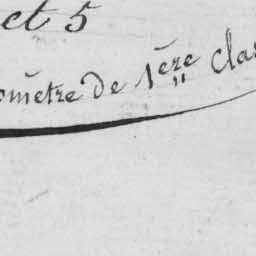 et 5
omètre de 1ère clas